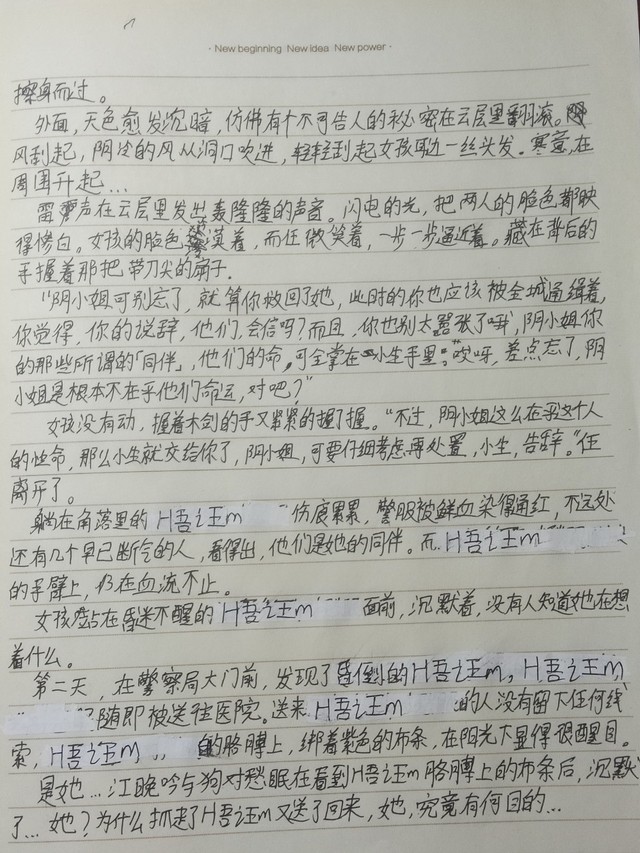 · New beginning New idea New power ·
擦身而过。
外面，天色愈发沉暗，仿佛有个不可告人的秘密在云层里翻滚。
风刮起，阴冷的风从洞口吹进，轻轻刮起女孩耳边一丝头发。寒意，在
周围升起...
雷声在云层里发出轰隆隆的声音。闪电的光，把两人的脸色都映
得惨白。女孩的脸色漠着，而任微笑着，一步一步逼近着。藏在背后的
手握着那把带刀尖的扇子.
“阴小姐可别忘了，就算你救回了她，此时的你也应该被全城通缉着，
你觉得，你的说辞，他们，会信吗？而且，你也别太嚣张了哦，阴小姐你
的那些所谓的「同伴」，他们的命，可全掌在小生手里。哎呀，差点忘了，阴
小姐是根本不在乎他们命运，对吧？”
女孩没有动，握着木剑的手又紧紧的握了握。“不过，阴小姐这么在乎这个人
的性命，那么小生就交给你了，阴小姐，可要仔细考虑再处置，小生，告辞。”任
离开了。
躺在角落里的H吾辶王m 伤痕累累，警服被鲜血染得通红，不远处
还有几个早已断气的人，看得出，他们是她的同伴。而H吾辶王m
的手臂上，仍在血流不止。
女孩站在昏迷不醒的H吾辶王m 面前，沉默着，没有人知道她在想
着什么。
第二天，在警察局大门前，发现了昏倒的H吾辶王m，H吾辶王m
随即被送往医院。送来H吾辶王m 的人没有留下任何线
索，H吾辶王m 的胳膊上，绑着紫色的布条，在阳光下显得很醒目。
是她...江晚吟与狗对愁眠在看到H吾辶王m胳膊上的布条后，沉默
了...她？为什么抓走了H吾辶王m又送了回来，她，究竟有何目的...